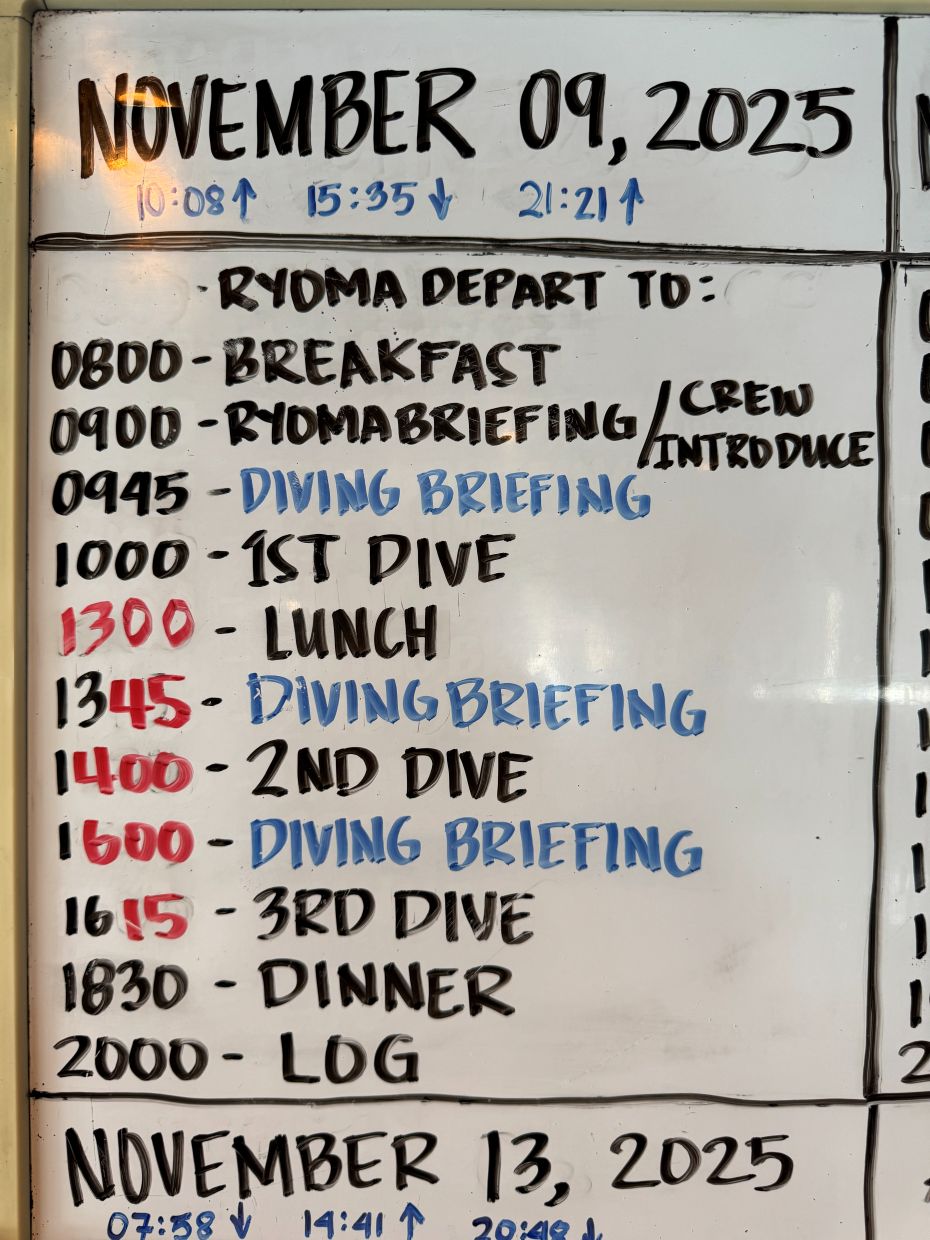 NOVEMBER 09, 2025
10:08↑ 15:35↓ 21:21↑
RYOMA DEPART TO:
0800 - BREAKFAST
0900 - RYOMA BRIEFING / CREW INTRODUCE
0945 - DIVING BRIEFING
1000 - 1ST DIVE
1300 - LUNCH
1345 - DIVING BRIEFING
1400 - 2ND DIVE
1600 - DIVING BRIEFING
1615 - 3RD DIVE
1830 - DINNER
2000 - LOG
NOVEMBER 13, 2025
07:58↓ 14:41↑ 20:48↓